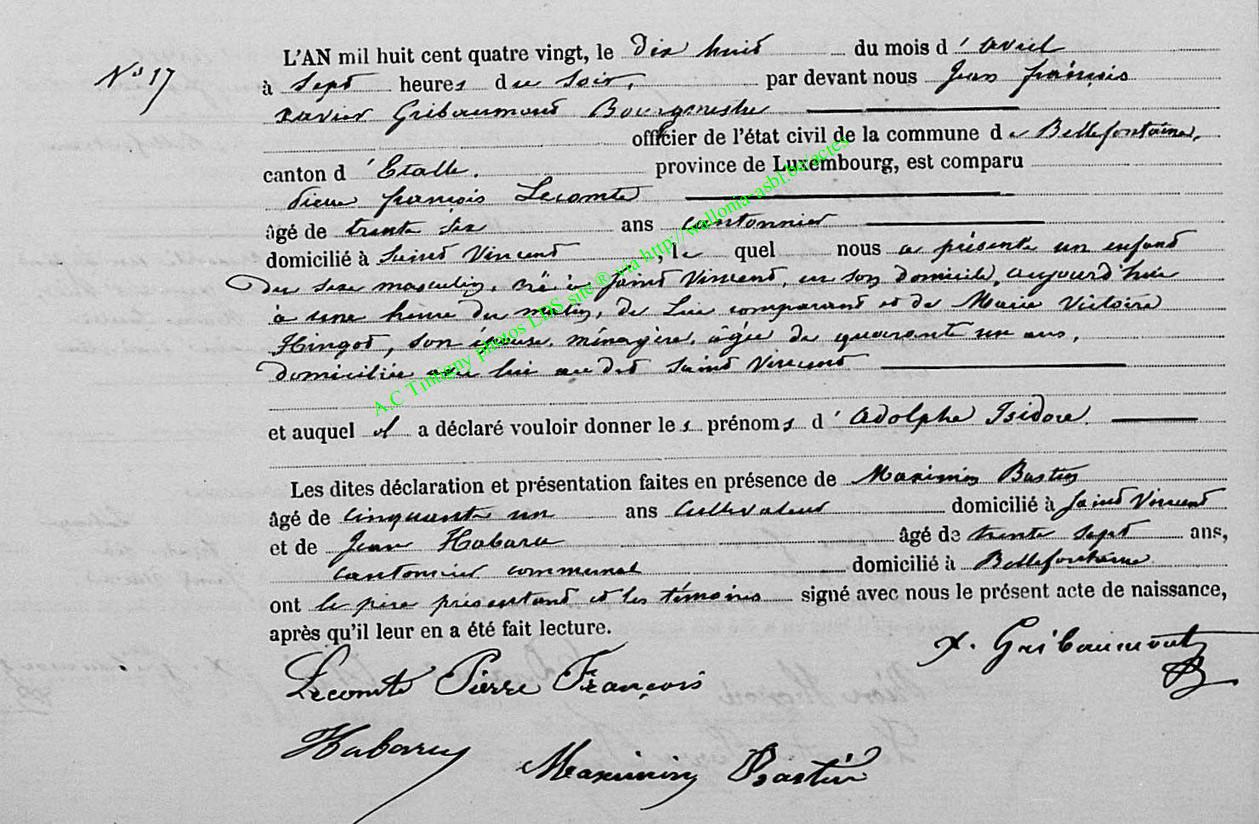 L'AN mil huit cent quatre vingt, le dix huit du mois d'avril
N° 17
à sept heures du soir, par devant nous Jean françois
xavier Gribaumont Bourgmestre
officier de l'état civil de la commune de Bellefontaine,
canton d'Etalle. province de Luxembourg, est comparu
Pierre françois Lecomte
âgé de trente six ans cantonnier
domicilié à Saint Vincent lequel nous a présenté un enfant
du sexe masculin, né à Saint Vincent, en son domicile, aujourd'hui
à une heure du matin, de lui comparant et de Marie Victoire
Hingot, son épouse, ménagère, âgée de quarante un ans,
domiciliée avec lui au dit Saint Vincent
et auquel il a déclaré vouloir donner les prénoms d'Adolphe Isidore.
Les dites déclaration et présentation faites en présence de Maximin Bastin
âgé de cinquante un ans Cultivateur domicilié à Saint Vincent
et de Jean Habaru âgé de trente sept ans,
cantonnier communal domicilié à Bellefontaine
ont le père présentant et les témoins signé avec nous le présent acte de naissance,
après qu'il leur en a été fait lecture.
x. Gribaumont
Lecomte Pierre François
Habaru Maximin Bastin
A.C Tintigny photos LDS site ® via http://wallonia-asbl.be/actes